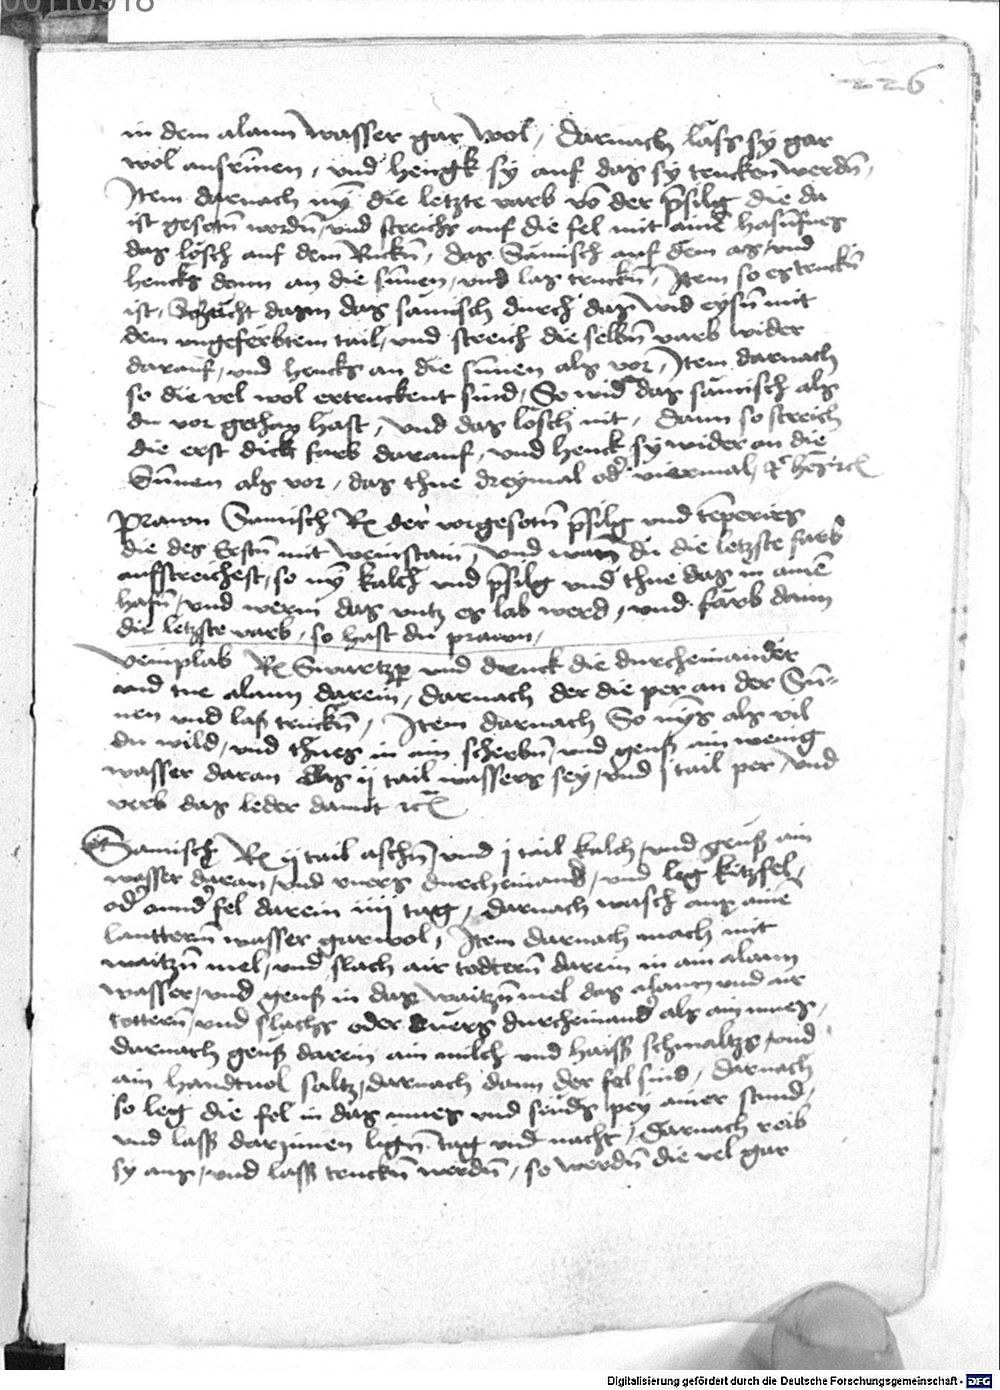 00110918
226
in dem alaun wasser gar wol / darnach lass sy gar
wol ausrinnen / und hengk sy auf das sy trucken werdn̄ /
Item darnach nym̄ die letzte varb vō der p̄silg die da
ist gesotn̄ wordn̄ / und streichs auf die fel mit ainē hasnfues
das lösch auf dem Ruckn̄ / das Sämisch auf dem as / und
hencks dann an die sūnen / und las truckn̄ / Item so es truckn̄
ist / dann das sämisch durch das eysn̄ mit
dem ungeferbtem tail / und streich die selbn̄ varb wider
darauf / und hencks an die sūnen als vor / Item darnach
so die vel wol ertruckent sind / So wid das sämisch als
du vor gethan hast / und das lösch nit / dann so streich
die erst dick farb darauf / und henck sy wider an die
Sūnen als vor / das thue dreymal od̄ viermal /
Prawn Sämisch Rx der vorgesotn̄ p̄silg und tēperiers
die des Erstn̄ mit weinstain / und wan̄ du die letzste farb
aufstreichest / so nym̄ kalch und p̄silg und thue das in ainē
hafn̄ / und werm das untz es lab werd / und farb dann
die letzste varb / so hast du prawn /
Veinplab Rx Swartzp̄ und druck die durcheinander
und tue alaun darein / darnach der die per an der Sūn-
nen und las truckn̄ / Item darnach So nym̄s als vil
du wild / und thues in ain scherbn̄ / und geuß ain wenig
wasser daran das ij tail wassers sey / und j tail per / und
verb das leder damit rc̄
Sämisch Rx ij tail aschn̄ und j tail kalch / und geuß ain
wasser daran / und ruers durcheinand̄ / und leg kitzfel /
od̄ annd̄ fel darein iiij tag / darnach wasch auß ainē
lautterm̄ wasser gar wol / Item darnach mach mit
waitzn̄ mel / und slach air todtern̄ darein in ain alaun
wasser / und geuß in das waitzn̄ mel das alaun und air
tottern̄ / und slachs oder ruers durcheinand̄ als ain mues /
darnach geuß darein ain milch und haiss schmaltzs / und
ain handtuol saltz / darnach dann der fel sind / darnach
so leg die fel in das mues und seuds pey ainer stund /
und lass darjnnen lign̄ tag und nacht / darnach reib
sy aus / und lass truckn̄ werdn̄ / so werdn̄ die vel gar
Digitalisierung gefördert durch die Deutsche Forschungsgemeinschaft - DFG